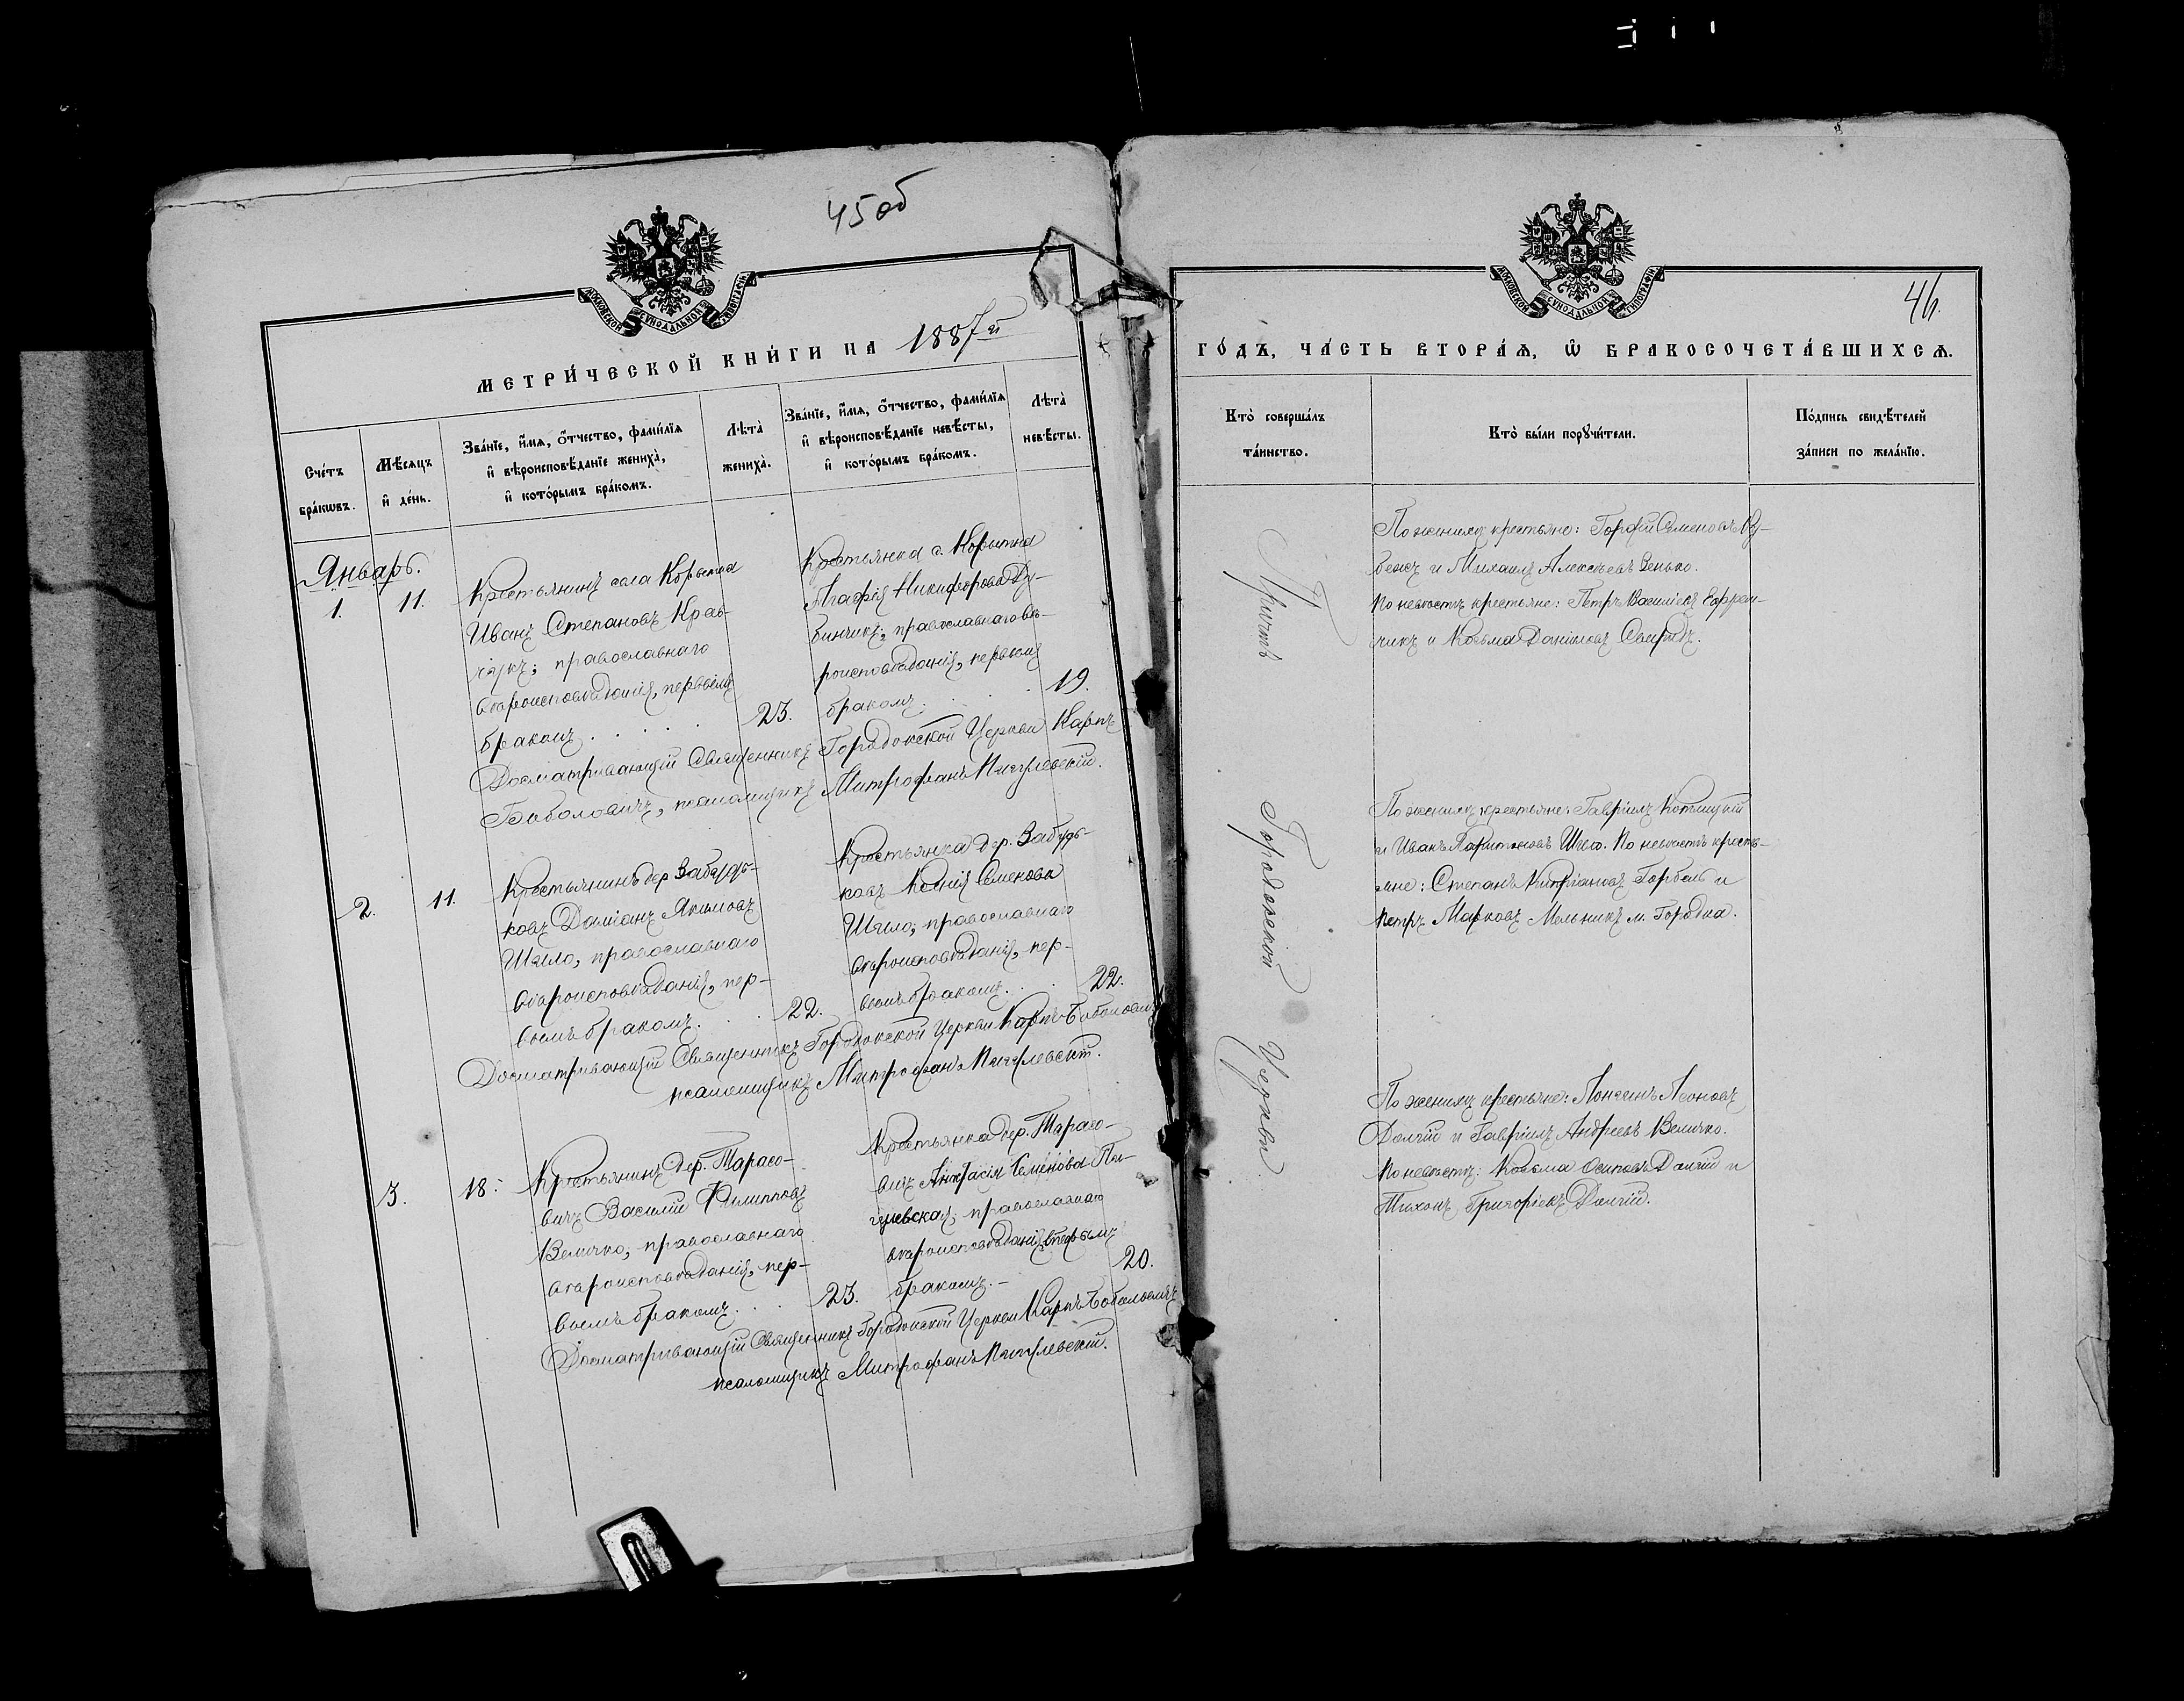 45 об
МОСКОВСКОЙ СѴНОДАЛЬНОЙ ТИПОГРАФІИ
МЕТРИ́ЧЕСКОЙ КНИ́ГИ НА 1887й
Сче́тъ бра́кωвъ.
Мѣ́сяцъ и҆ де́нь.
Зва́нїе, и҆́мѧ, ѻ҆́тчество, фами́лїѧ
и҆ вѣроисповѣ́данїе жениха̀,
и҆ кото́рымъ бра́комъ.
Лѣта̀ жениха̀.
Зва́нїе, и҆́мѧ, ѻ҆́тчество, фами́лїѧ
и҆ вѣроисповѣ́данїе невѣ́сты,
и҆ кото́рымъ бра́комъ.
Лѣта̀ невѣ́сты.
Январь.
1. 11.
Крестьянинъ села Корытна
Иванъ Степановъ Крав-
чукъ; православнаго
вѣроисповѣданія, первымъ
бракомъ . . . . 23.
Крестьянка с. Корытна
Агафія Никифорова Ду-
бинчикъ, православнаго вѣ-
роисповѣданія, первымъ
бракомъ . . . . 19.
Досматривающій Священникъ Городокской Церкви Карпъ
Боболовичъ, псаломщикъ Митрофанъ
2. 11.
Крестьянинъ дер Забудь-
ковъ Даміанъ Якимовъ
Шило, православнаго
вѣроисповѣданія, пер-
вымъ бракомъ . . . 22.
Крестьянка дер. Забудь-
ковъ Ксенія Семенова
Шило, православнаго
вѣроисповѣданія, пер-
вымъ бракомъ . . 22.
Досматривающій Священникъ Городокской Церкви Карпъ Боболовичъ
псаломщикъ Митрофанъ
3. 18.
Крестьянинъ дер. Тарасо-
вичъ Василій Филипповъ
Величко, православнаго
вѣроисповѣданія, пер-
вымъ бракомъ . . 23.
Крестьянка дер. Тарасо-
вичъ Анастасія Семенова
православнаго
вѣроисповѣданія, первымъ
бракомъ. – 20.
Досматривающій Священникъ Городокской Церкви Карпъ Боболовичъ
псаломщикъ Митрофанъ
МОСКОВСКОЙ СѴНОДАЛЬНОЙ ТИПОГРАФІИ
46.
ГО́ДЪ, ЧА́СТЬ ВТОРА́Ѧ, Ѽ БРАКОСОЧЕТА́ВШИХСѦ.
Кто̀ соверша́лъ
та́инство.
Кто̀ бы́ли порꙋчи́тели.
По́дпись свидѣ́телей
за́писи по жела́нїю.
Причтъ Городокской Церкви
По женихѣ крестьяне: Семеновъ
и Михаилъ Алексѣевъ Зенько.
По невѣстѣ крестьяне: Петръ Василіевъ Ефрем-
чикъ и Козьма Даніиловъ
По женихѣ крестьяне: Гавріилъ
и Иванъ Харитоновъ Шило. По невѣстѣ кресть-
яне: Степанъ Кипріановъ Горбель и
Петръ Марковъ Мельникъ м. Городка.
По женихѣ крестьяне: Лонгинъ Леоновъ
Долгій и Гавріилъ Андреевъ Величко.
По невѣстѣ: Козьма Осиповъ Долгій и
Тихонъ Григоріевъ Долгій.